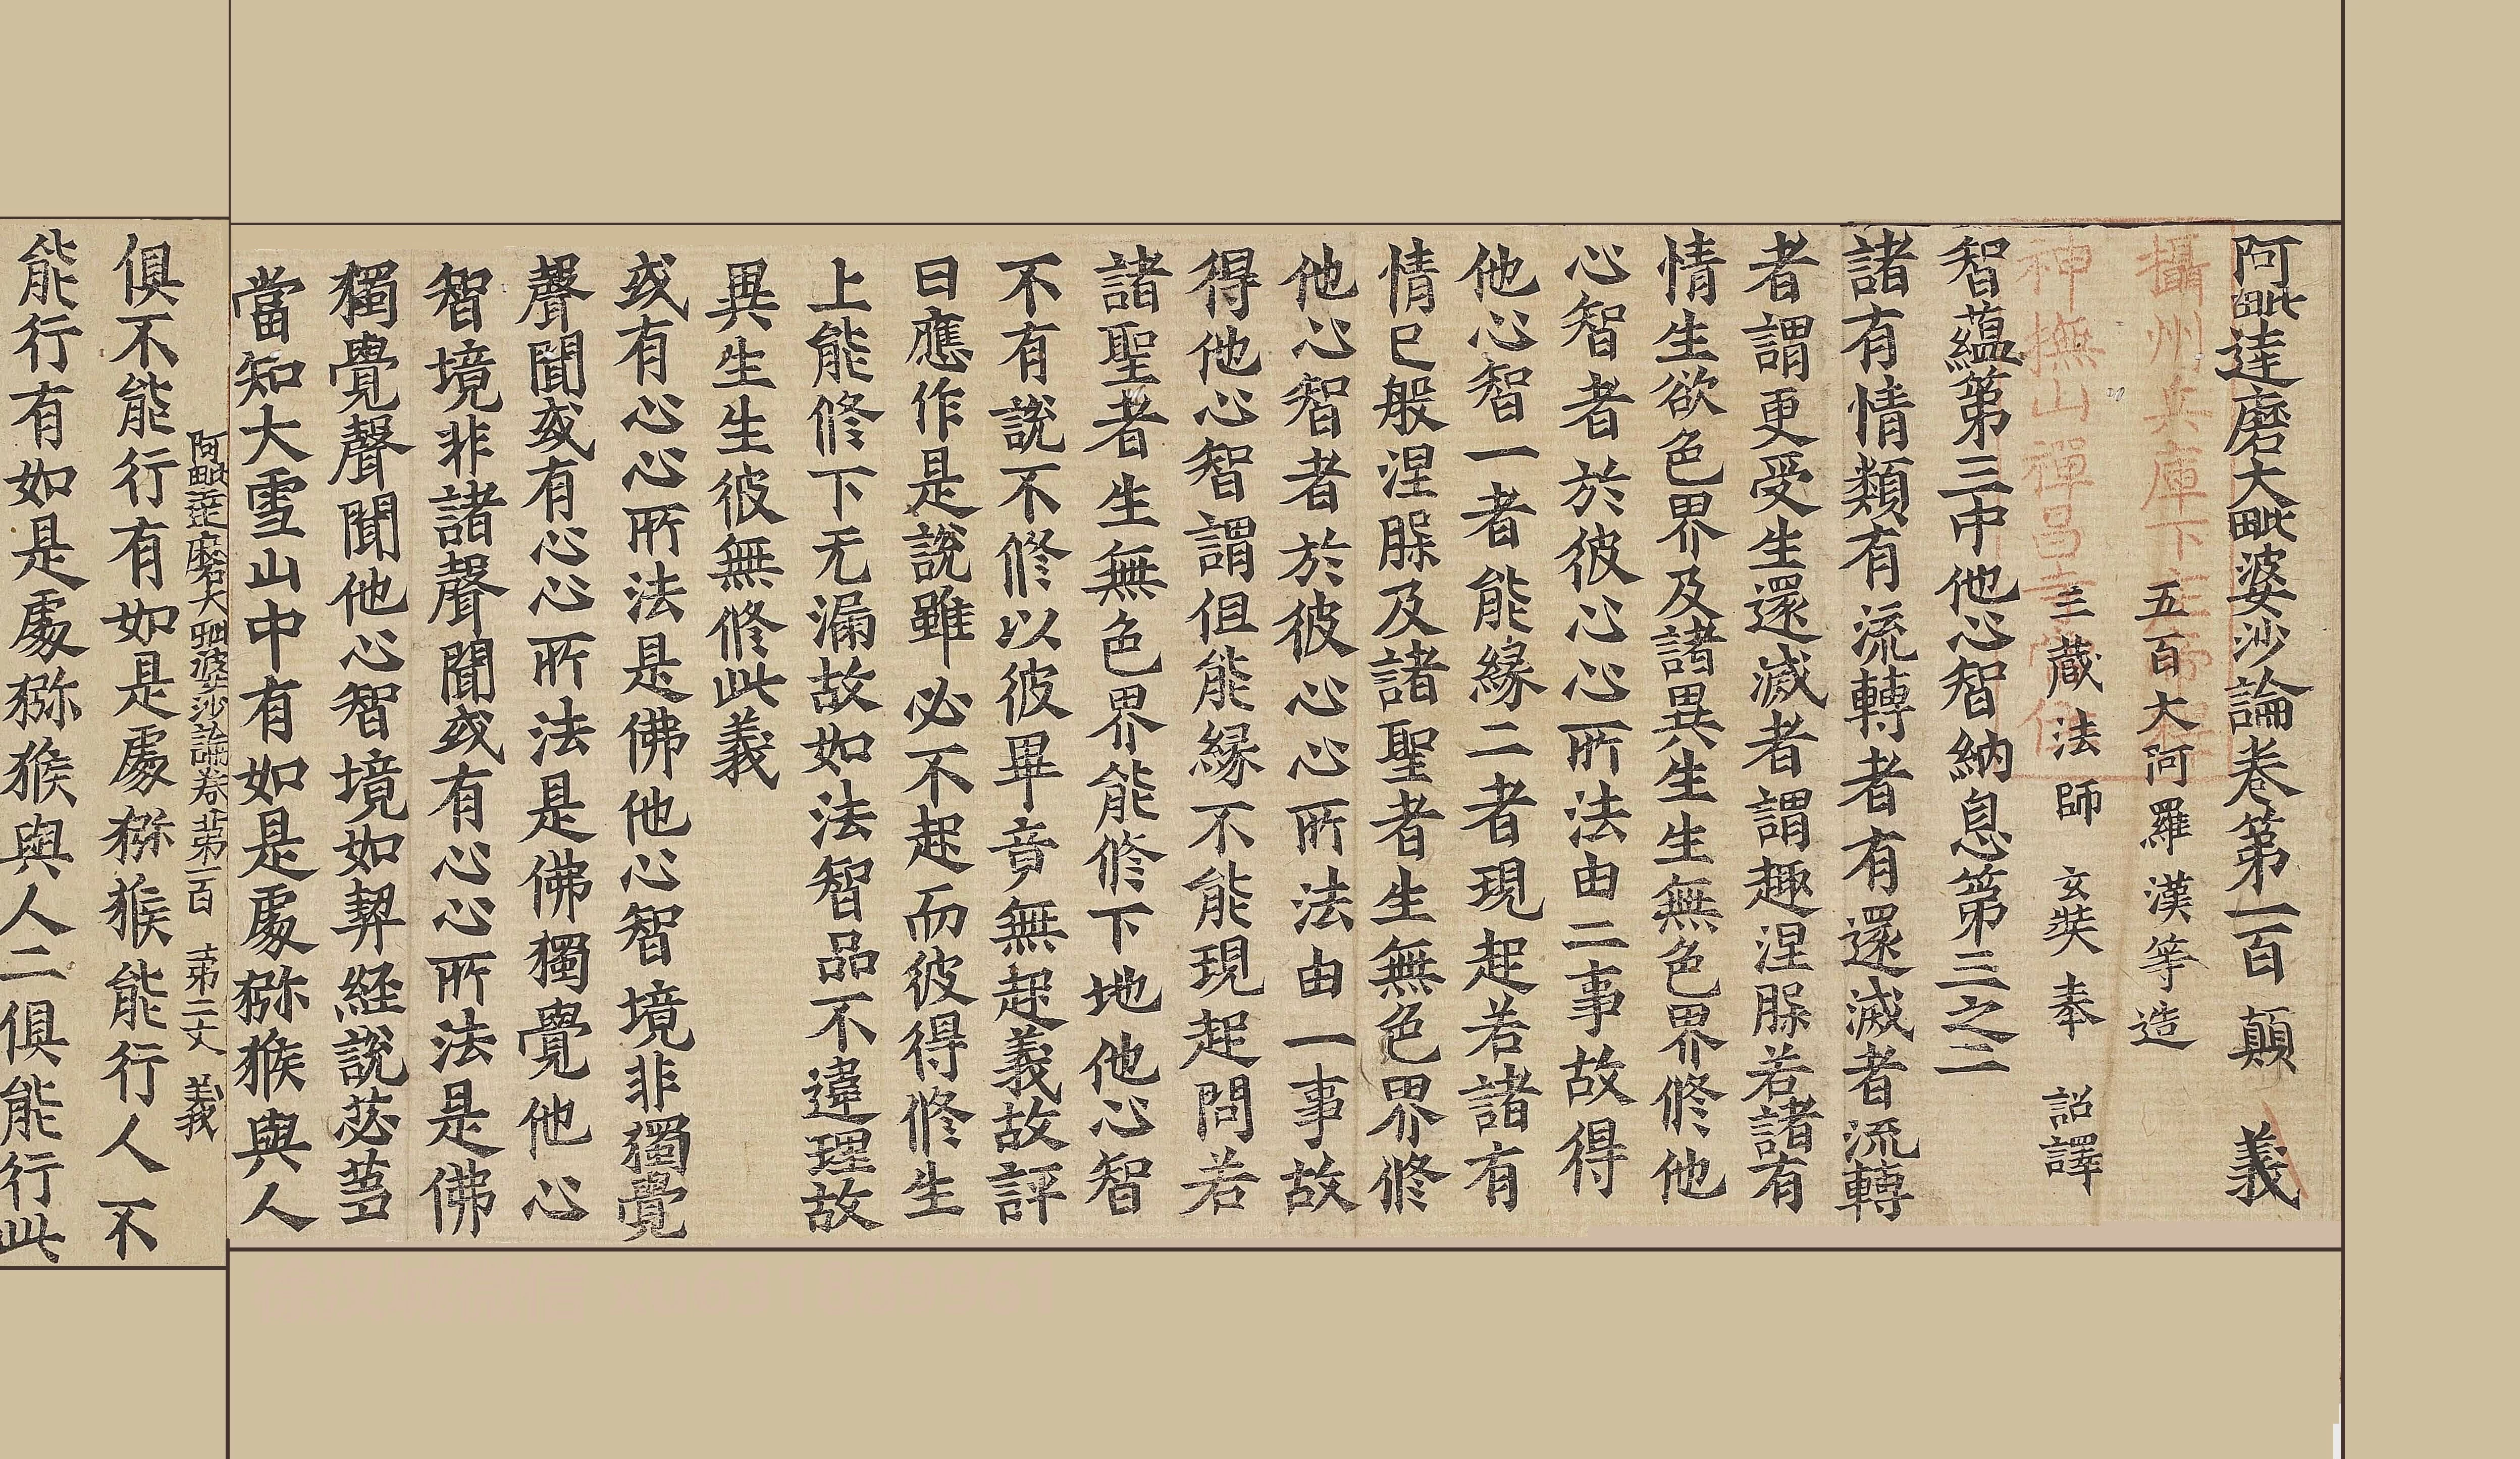 阿毗達磨大毗婆沙論卷第一百 顛 義
五百大阿羅漢等造
三藏法師 玄奘奉 詔譯
智蘊第三中他心智納息第三之二
諸有情類有流轉者有還滅者流轉
者謂更受生還滅者謂趣涅槃若諸有
情生欲色界及諸異生生無色界修他
心智者於彼心心所法由二事故得
他心智一者能緣二者現起若諸有
情已般涅槃及諸聖者生無色界修
他心智者於彼心心所法由一事故
得他心智謂但能緣不能現起問若
諸聖者生無色界能修下地他心智
不有說不修以彼畢竟無起義故評
曰應作是說雖必不起而彼得修生
上能修下无漏故如法智品不違理故
異生生彼無修此義
或有心心所法是佛他心智境非獨覺
聲聞或有心心所法是佛獨覺他心
智境非諸聲聞或有心心所法是佛
獨覺聲聞他心智境如契經說苾蒭
當知大雪山中有如是處猕猴與人
阿毗達磨大毗婆沙論卷第一百 第二丈 義
俱不能行有如是處猕猴能行人不
能行有如是處猕猴與人二俱能行此